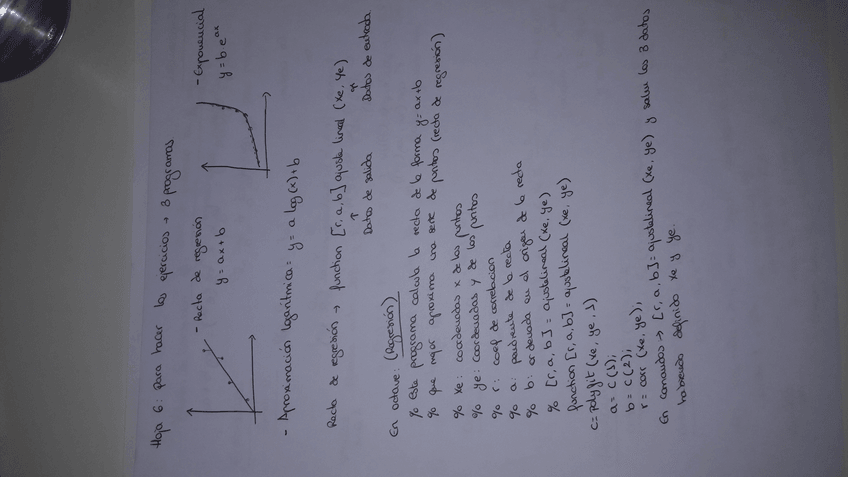 Hoja 6: para hacer los ejercicios → 3 programas
- Recta de regresión
y = ax + b
- Exponencial
y = b e^ax
- Aproximación logarítmica: y = a log(x) + b
Recta de regresión → function [r, a, b] ajuste lineal (xe, ye)
↑ Datos de salida
Datos de entrada
En octave: (Regresión)
% Este programa calcula la recta de la forma y = ax + b
% que mejor aproxima una serie de puntos (recta de regresión)
% xe: coordenadas x de los puntos
% ye: coordenadas y de los puntos
% r: coef de correlacion
% a: pendiente de la recta
% b: ordenada en el origen de la recta
% [r, a, b] = ajustelineal (xe, ye)
function [r, a, b] = ajustelineal (xe, ye)
c = polyfit (xe, ye, 1)
a = c(1);
b = c(2);
r = corr (xe, ye);
En comandos → [r, a, b] = ajustelineal (xe, ye) y salen los 3 datos
habiendo definido xe y ye.